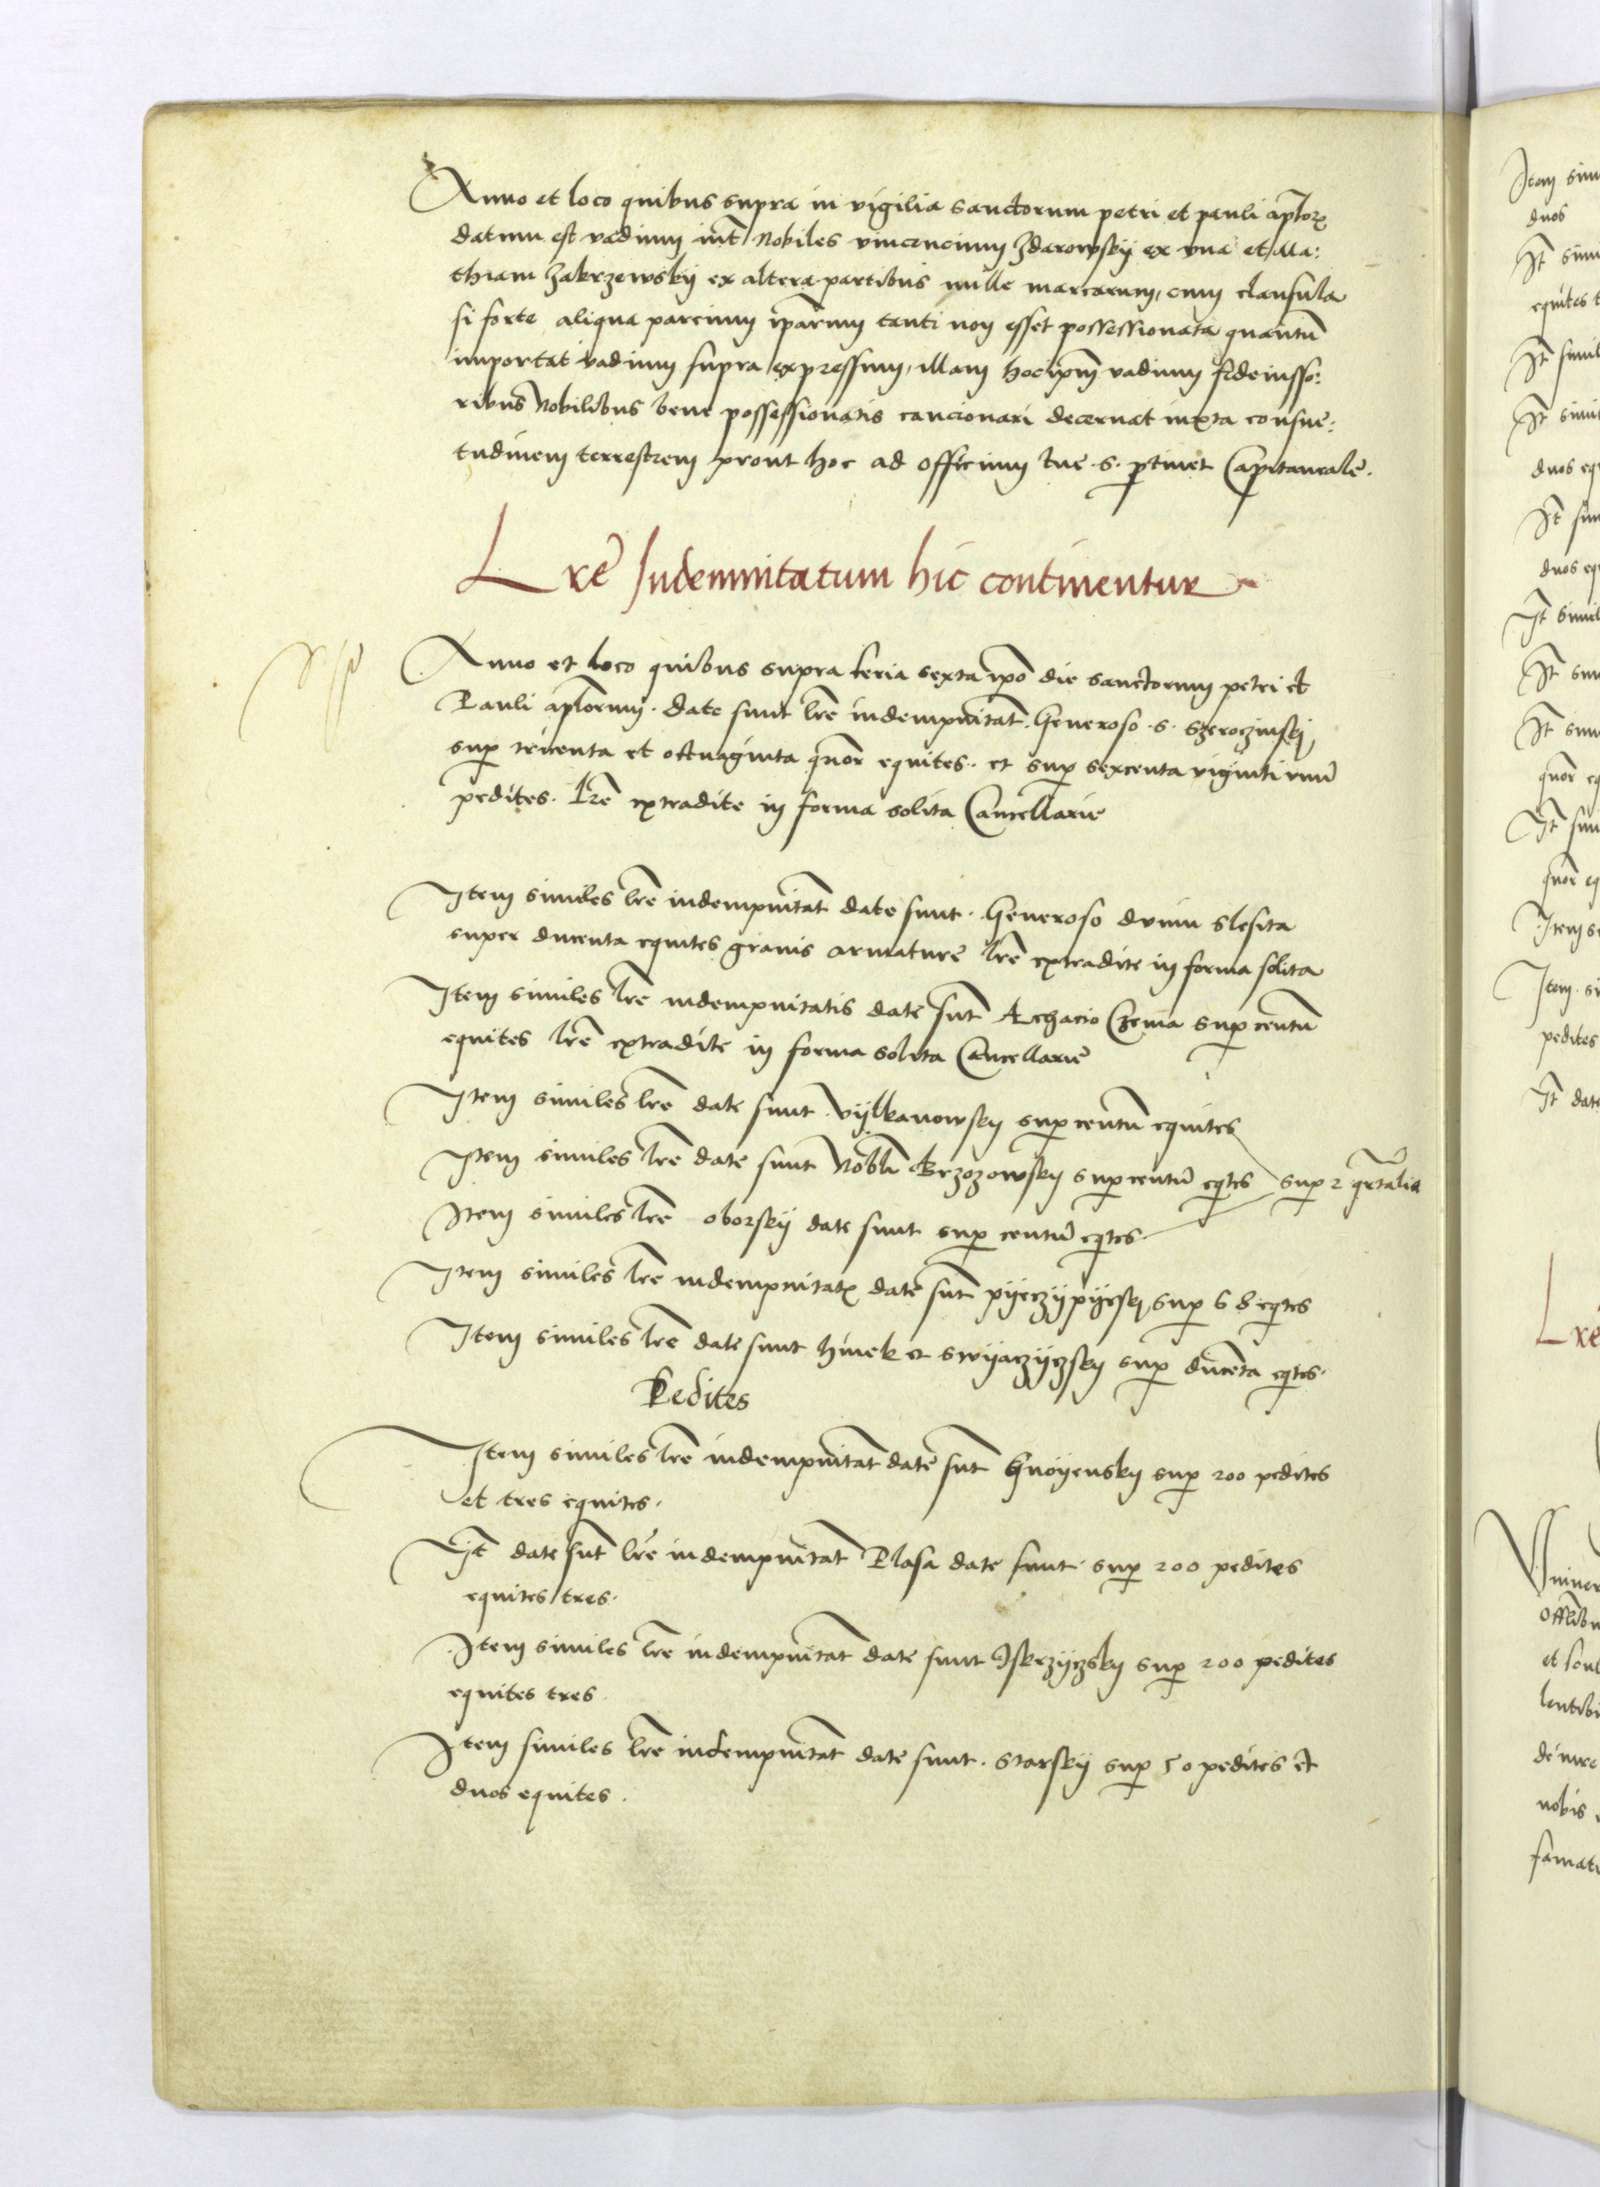 Anno et loco quibus supra in vigilia sanctorum petri et pauli aplor
datum est vadium int Nobiles vincencium Zdarowskij ex una et Ma:
thiam Zakrzewskij ex altera partibus mille marcarum, cum clausula
si forte aliqua parcium iparum tanti non esset possessionata quantu
importat vadium supra expressum, illam hoc ipm vadium fideiusso:
ribus Nobilibus bene possessionatis caucionari decernat iuxta consue:
tudinem terrestrem prout hoc ad officium tue .s. ptinet Capitaneale.
Lre Indemnitatum hic continentur
Anno et loco quibus supra feria sexta ipo die sanctorum petri et
Pauli aplorum. date sunt lre indempnitat. Generoso .s.
sup tricenta et octuaginta quor equites. et sup sexcenta viginti unu
pedites. lre extradite in forma solita Cancellarie
Item similes lre indempnitat date sunt. Generoso dunin slesita
super ducenta equites gravis armature lre extradite in forma solita
Item similes lre indempnitatis date sunt Achacio Czema sup centu
equites lre extradite in forma solita Cancellarie
Item similes lre date sunt. vijlkanowskij sup centu equites
Item similes lre date sunt Nobli Brzozowskij sup centu eqtes sup 2 qrtalia
Item similes lre oborskij date sunt sup centu eqtes.
Item similes lre indempnitat date sunt sup 68 eqtes
Item similes lre date sunt hinek et sup ducenta eqtes.
Pedites
Item similes lre indempnitat date sunt Gnoyenskij sup 200 pedites
et tres equites.
It date sunt lre indempnitat Plasa date sunt. sup 200 pedites
equites tres.
Item similes lre indempnitat date sunt Iskrzijczskij sup 200 pedites
equites tres.
Item similes lre indempnitat date sunt. starskij sup 50 pedites et
duos equites.